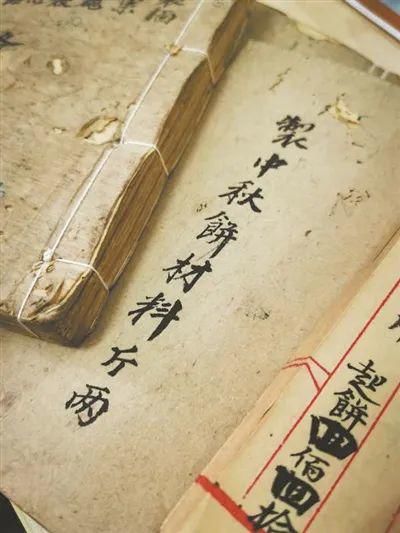 製中秋餅材料斤両
起餅四佰四拾